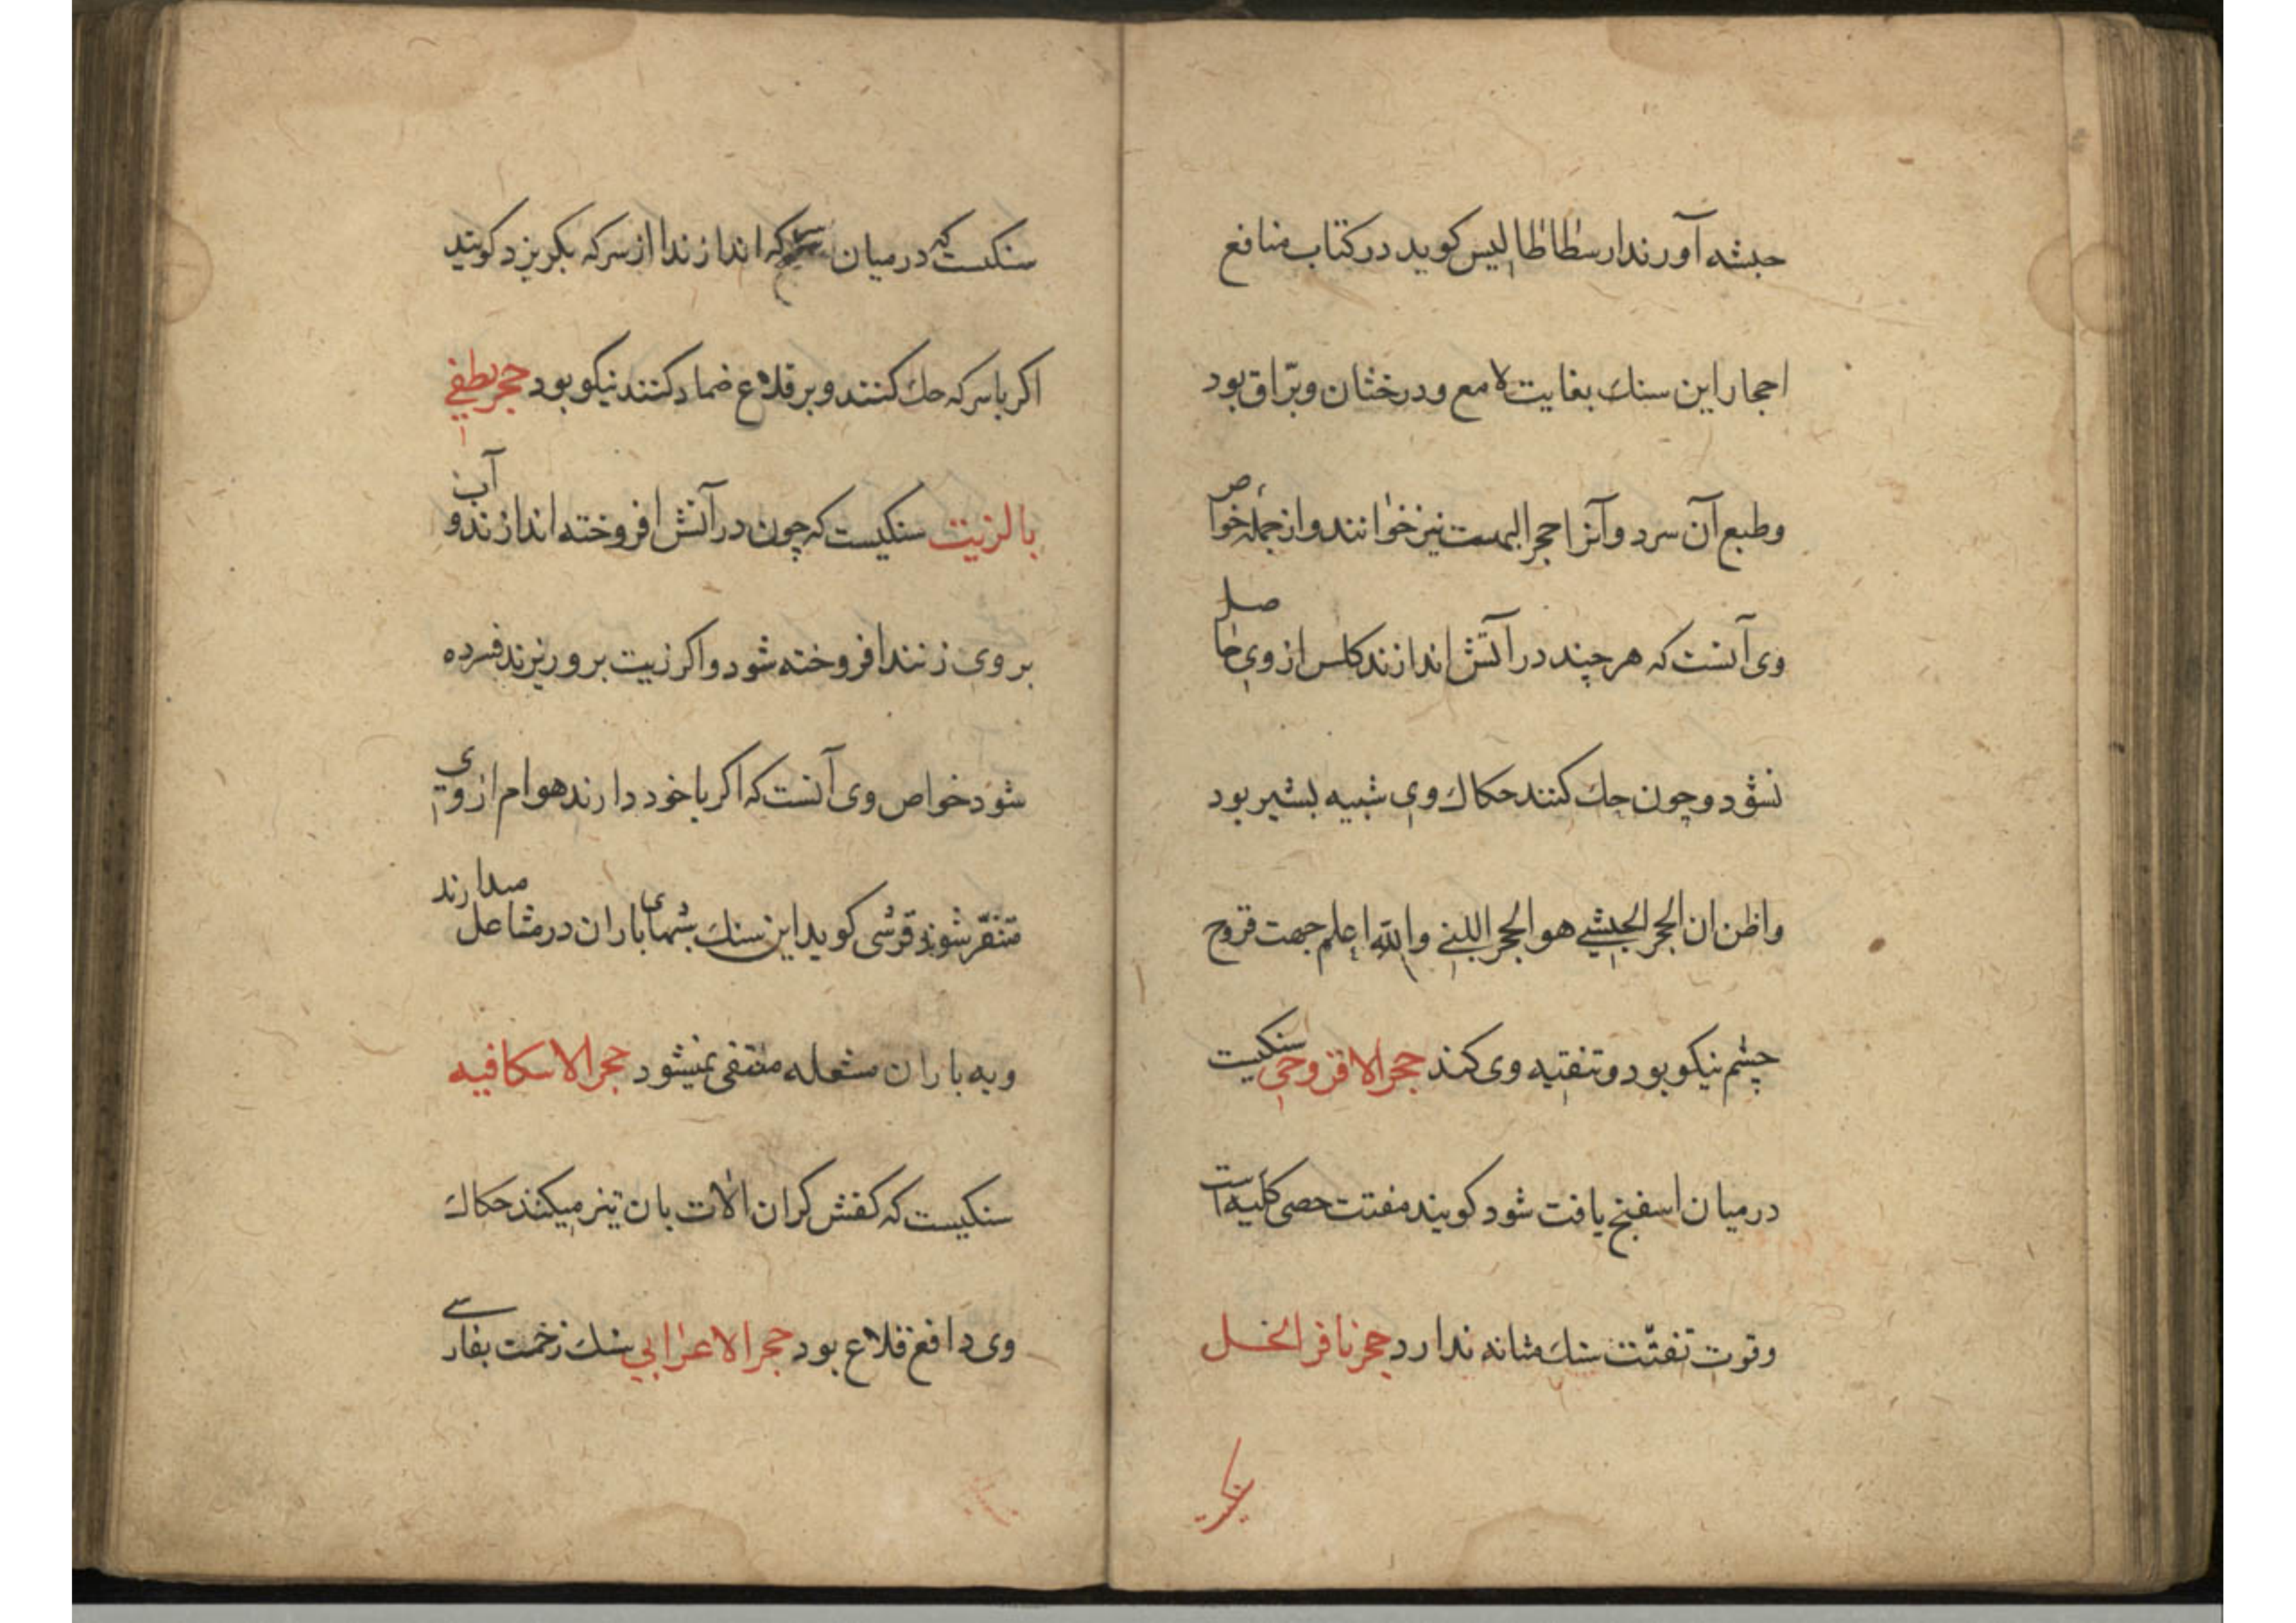 حبشه آورند ارسطاطاليس كويد در كتاب منافع
احجار اين سنك بغايت لامع و درخشان و برّاق بود
و طبع آن سرد و آنرا حجر نيز خوانند و از جمله خواص
وى آنست كه هر چند در آتش اندازند كلس از وى حاصل
نشود و چون حك كنند حكاك وى شبيه بشير بود
واظن ان الحجر الحبشي هو الحجر اللبني والله اعلم جهت قروح
چشم نيكو بود و تنقيه وى كند حجر الافروحى سنكيست
در ميان اسفنج يافت شود كويند مفتت حصى كليه است
و قوت تفتّت سنك مثانه ندارد حجر نافر الخل
سنكيست
سنكيست كه در ميان سركه اندازند از سركه بكريزد كويند
اكر با سركه حك كنند و بر قلاع ضماد كنند نيكو بود حجر يطفي
بالزيت سنكيست كه چون در آتش افروخته اندازند و آب
بر وى زنند افروخته شود و اكر زيت برو ريزند فسرده
شود خواص وى آنست كه اكر با خود دارند هوام از وى
متنفّر شوند قرشى كويد اين سنك بشبهاى باران در مشاعل ميدارند
و به باران مشعله منتفى نميشود حجر الاسكافيه
سنكيست كه كفش كران الات بان تيز ميكنند حكاك
وى دافع قلاع بود حجر الاعرابي سنك زخمت بفارسے